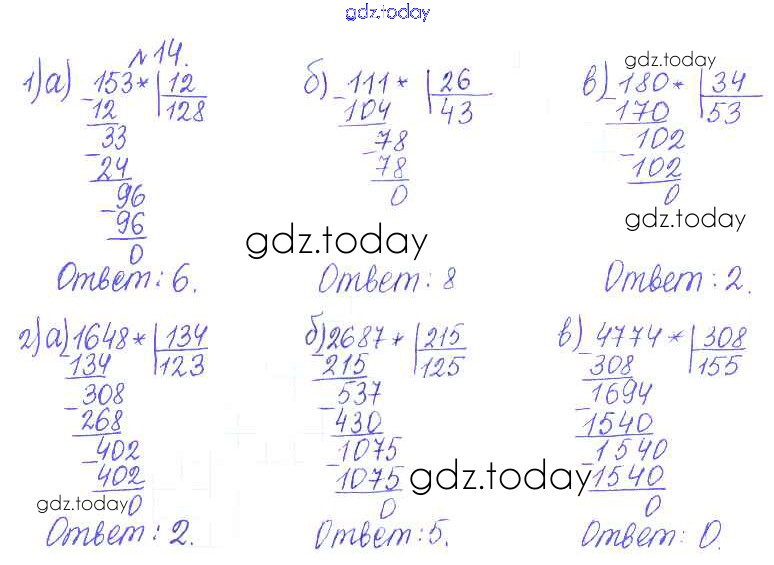 gdz.today
№14.
gdz.today
1) а) 153* | 12
128
- 12
33
- 24
96
- 96
0
Ответ: 6.
б) 111* | 26
43
- 104
78
- 78
0
Ответ: 8
в) 180* | 34
53
- 170
102
- 102
0
gdz.today
Ответ: 2.
gdz.today
2) а) 1648* | 134
123
- 134
308
- 268
402
- 402
0
gdz.today
Ответ: 2.
б) 2687* | 215
125
- 215
537
- 430
1075
- 1075
0
Ответ: 5.
gdz.today
в) 4774* | 308
155
- 308
1694
- 1540
1540
- 1540
0
Ответ: 0.